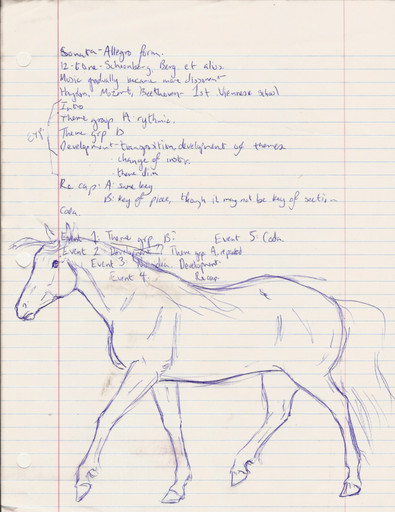 Sonata-Allegro form.
12-tone - Schoenberg, Berg, et alus.
Music gradually became more dissonant
Haydn, Mozart, Beethoven - 1st Viennese school
Intro
Theme group A: rythmic.
Theme grp B
Development - transposition, development of themes
- change of instr.
- theme dim
Re cap: A: same key
B: key of piece, though it may not be key of section
Coda.
Event 1: Theme grp B? Event 5: Coda
Event 2: Development Theme grp A, repeated
Event 3: Development.
Event 4: Recap